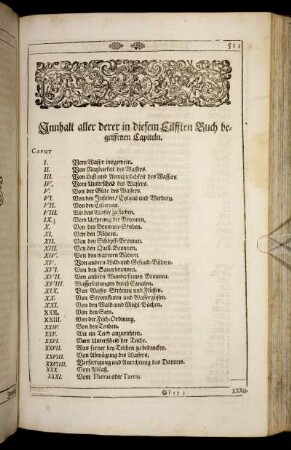 511
Innhalt aller derer in diesem Eilfften Buch be-
griffenen Capiteln.
CAPUT
I. Vom Wasser insgemein.
II. Von Nutzbarkeit des Wassers.
III. Von Lust und Annehmlichkeit des Wassers.
IV. Vom Unterscheid des Wassers.
V. Von der Güte des Wassers.
VI. Von den Inseln / Eyland und Werdern.
VII. Von den Cisternen.
VIII. Wie das Wasser zu suchen.
IX. Vom Ursprung der Brunnen.
X. Von den Brunnen-Stuben.
XI. Von den Röhren.
XII. Von den Schöpff-Brunnen.
XIII. Von den Quell-Brunnen.
XIV. Von den warmen Bädern.
XV. Von andern Wild- und Gesund-Bädern.
XVI. Von den Sauerbrunnen.
XVII. Von andern Wundersamen Brunnen.
XVIII. Wasserleitungen durch Canalen.
XIX. Von Wasser-Ströhmen und Flüssen.
XX. Von Stromkarten und Wassergüssen.
XXI. Von den Wald- und Mühl-Bächen.
XXII. Von den Seen.
XXIII. Von der Fisch-Ordnung.
XXIV. Von den Teichen.
XXV. Wie ein Teich anzurichten.
XXVI. Vom Unterscheid der Teiche.
XXVII. Was ferner bey Teichen zu bedencken.
XXVIII. Von Abwägung des Wassers.
XXVIIII. Verfertigung und Anrichtung des Dammes.
XXX. Vom Ablaß.
XXXI.
XXXII.